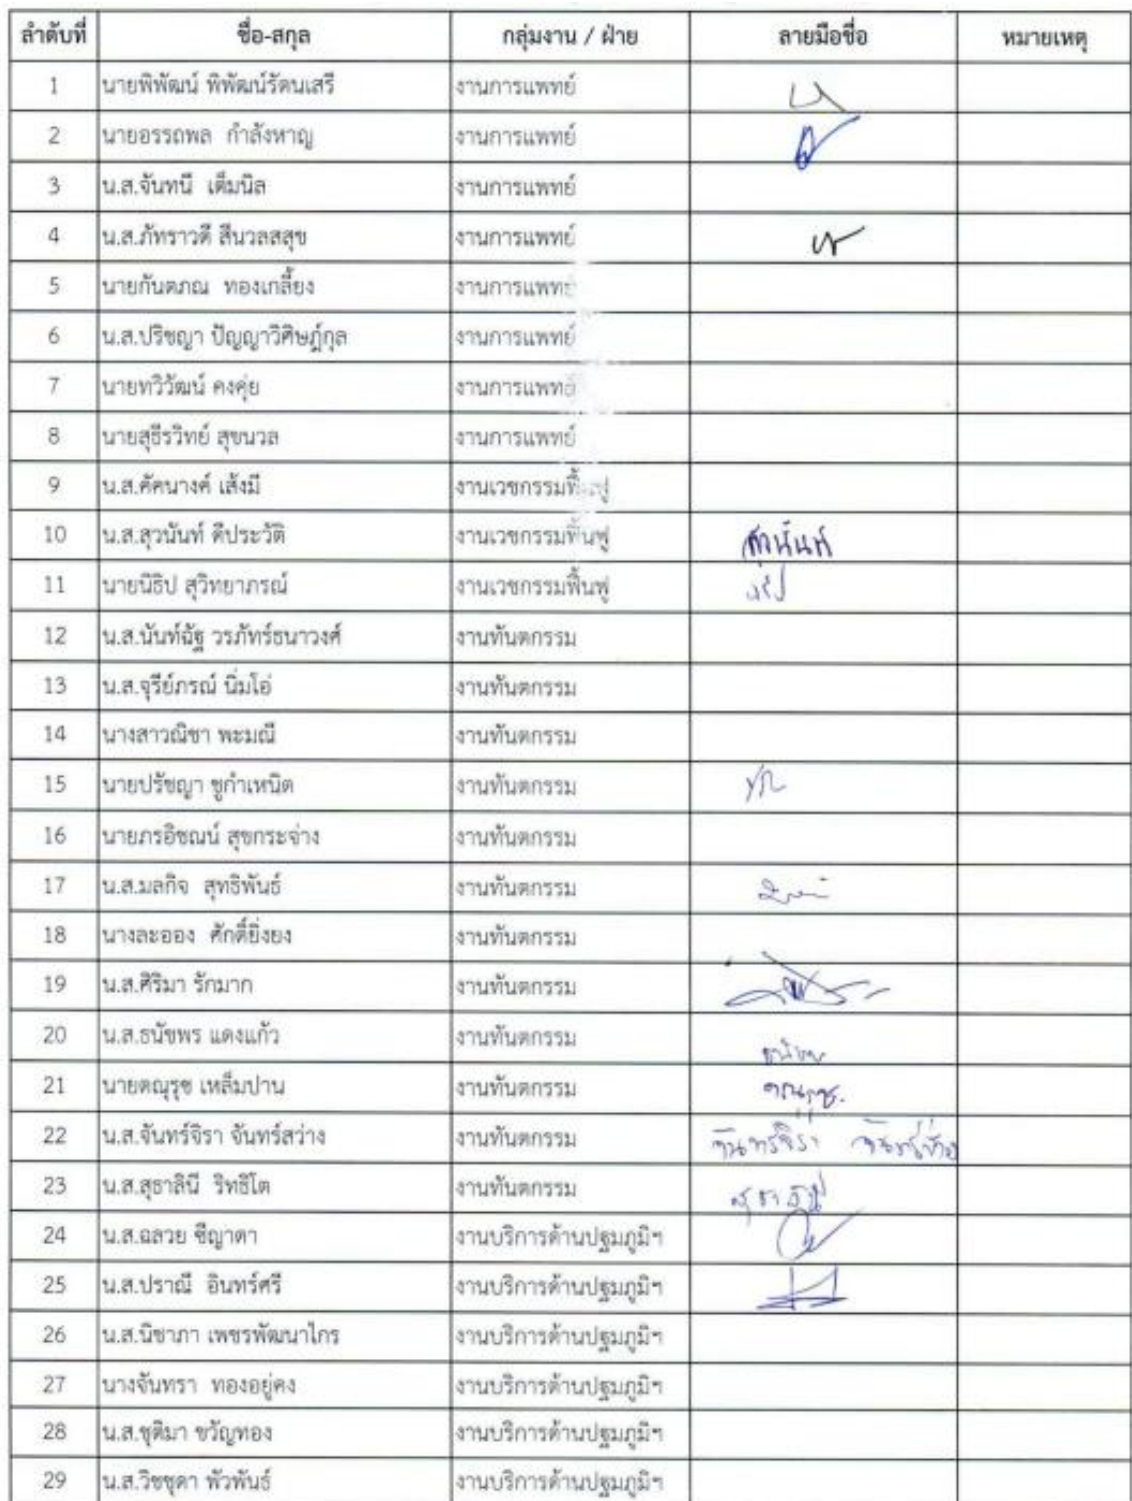 ลำดับที่ ชื่อ-สกุล กลุ่มงาน / ฝ่าย ลายมือชื่อ หมายเหตุ
1 นายพิพัฒน์ พิพัฒน์รัตนเสรี งานการแพทย์
2 นายอรรถพล กำลังหาญ งานการแพทย์
3 น.ส.จันทนี เต็มนิล งานการแพทย์
4 น.ส.ภัทราวดี สีนวลสสุข งานการแพทย์
5 นายกันตภณ ทองเกลี้ยง งานการแพทย์
6 น.ส.ปริชญา ปัญญาวิศิษฎ์กุล งานการแพทย์
7 นายทวิวัฒน์ คงคุ่ย งานการแพทย์
8 นายสุธีรวิทย์ สุขนวล งานการแพทย์
9 น.ส.คัคนางค์ เส้งมี งานเวชกรรมฟื้นฟู
10 น.ส.สุวนันท์ ดีประวัติ งานเวชกรรมฟื้นฟู สุวนันท์
11 นายนิธิป สุวิทยาภรณ์ งานเวชกรรมฟื้นฟู
12 น.ส.นันท์ฉัฐ วรภัทร์ธนาวงศ์ งานทันตกรรม
13 น.ส.จุรีย์ภรณ์ นิ่มโอ่ งานทันตกรรม
14 นางสาวณิชา พะมณี งานทันตกรรม
15 นายปรัชญา ชูกำเหนิด งานทันตกรรม
16 นายภรอิชณน์ สุขกระจ่าง งานทันตกรรม
17 น.ส.มลกิจ สุทธิพันธ์ งานทันตกรรม
18 นางละออง ศักดิ์ยิ่งยง งานทันตกรรม
19 น.ส.ศิริมา รักมาก งานทันตกรรม
20 น.ส.ธนัชพร แดงแก้ว งานทันตกรรม
21 นายดณุรุช เหล็มปาน งานทันตกรรม
22 น.ส.จันทร์จิรา จันทร์สว่าง งานทันตกรรม จันทร์จิรา จันทร์สว่าง
23 น.ส.สุธาลินี ริทธิโต งานทันตกรรม
24 น.ส.ฉลวย ชีญาตา งานบริการด้านปฐมภูมิฯ
25 น.ส.ปราณี อินทร์ศรี งานบริการด้านปฐมภูมิฯ
26 น.ส.นิชาภา เพชรพัฒนาไกร งานบริการด้านปฐมภูมิฯ
27 นางจันทรา ทองอยู่คง งานบริการด้านปฐมภูมิฯ
28 น.ส.ชุติมา ขวัญทอง งานบริการด้านปฐมภูมิฯ
29 น.ส.วิชชุดา พัวพันธ์ งานบริการด้านปฐมภูมิฯ